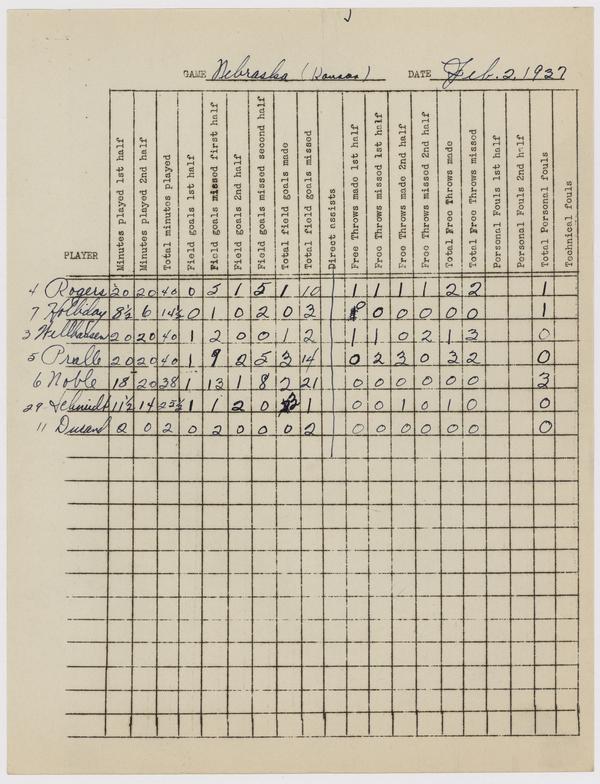 GAME Nebraska (Kansas) DATE Feb. 2, 1937
PLAYER Minutes played 1st half Minutes played 2nd half Total minutes played Field goals 1st half Field goals missed first half Field goals 2nd half Field goals missed second half Total field goals made Total field goals missed Direct assists Free Throws made 1st half Free Throws missed 1st half Free Throws made 2nd half Free Throws missed 2nd half Total Free Throws made Total Free Throws missed Personal Fouls 1st half Personal Fouls 2nd half Total Personal fouls Technical fouls
4 Rogers 20 20 40 0 5 1 5 1 10 1 1 1 1 2 2 1
7 Holliday 8½ 6 14½ 0 1 0 2 0 3 0 0 0 0 0 1
3 Wellhausen 20 20 40 1 2 0 0 1 2 1 1 0 2 1 3 0
5 Pralle 20 20 40 1 9 2 5 3 14 0 2 3 0 3 2 0
6 Noble 18 20 38 1 13 1 8 2 21 0 0 0 0 0 0 3
29 Schmidt 11½ 14 25½ 1 1 2 0 1 0 0 1 0 1 0 0
11 Durand 2 0 2 0 2 0 0 0 2 0 0 0 0 0 0 0